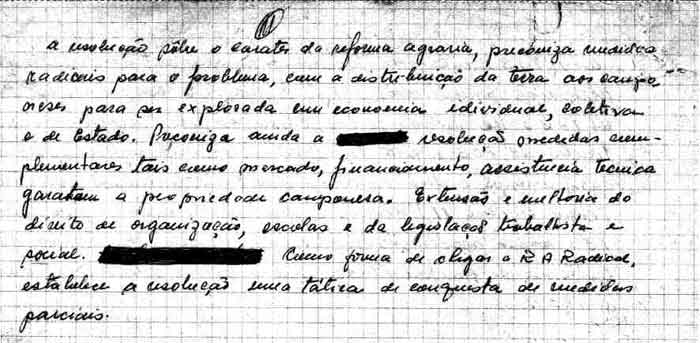 a resolução sôbre o carater da reforma agraria, preconiza medidas
radicais para o problema, com a distribuição da terra aos campo
neses para ser explorada em economia idividual, coletiva
e de Estado. Preconiza ainda a resolução medidas com-
plementares tais como mercado, financiamento, assistencia tecnica
garatam a propriedade camponesa. Extensão e melhoria do
direito de organização, escolas e da legislação trabalhista e
social. Como forma de chegar a R A Radical,
estabelece a resolução uma tática de conquista de medidas
parciais.